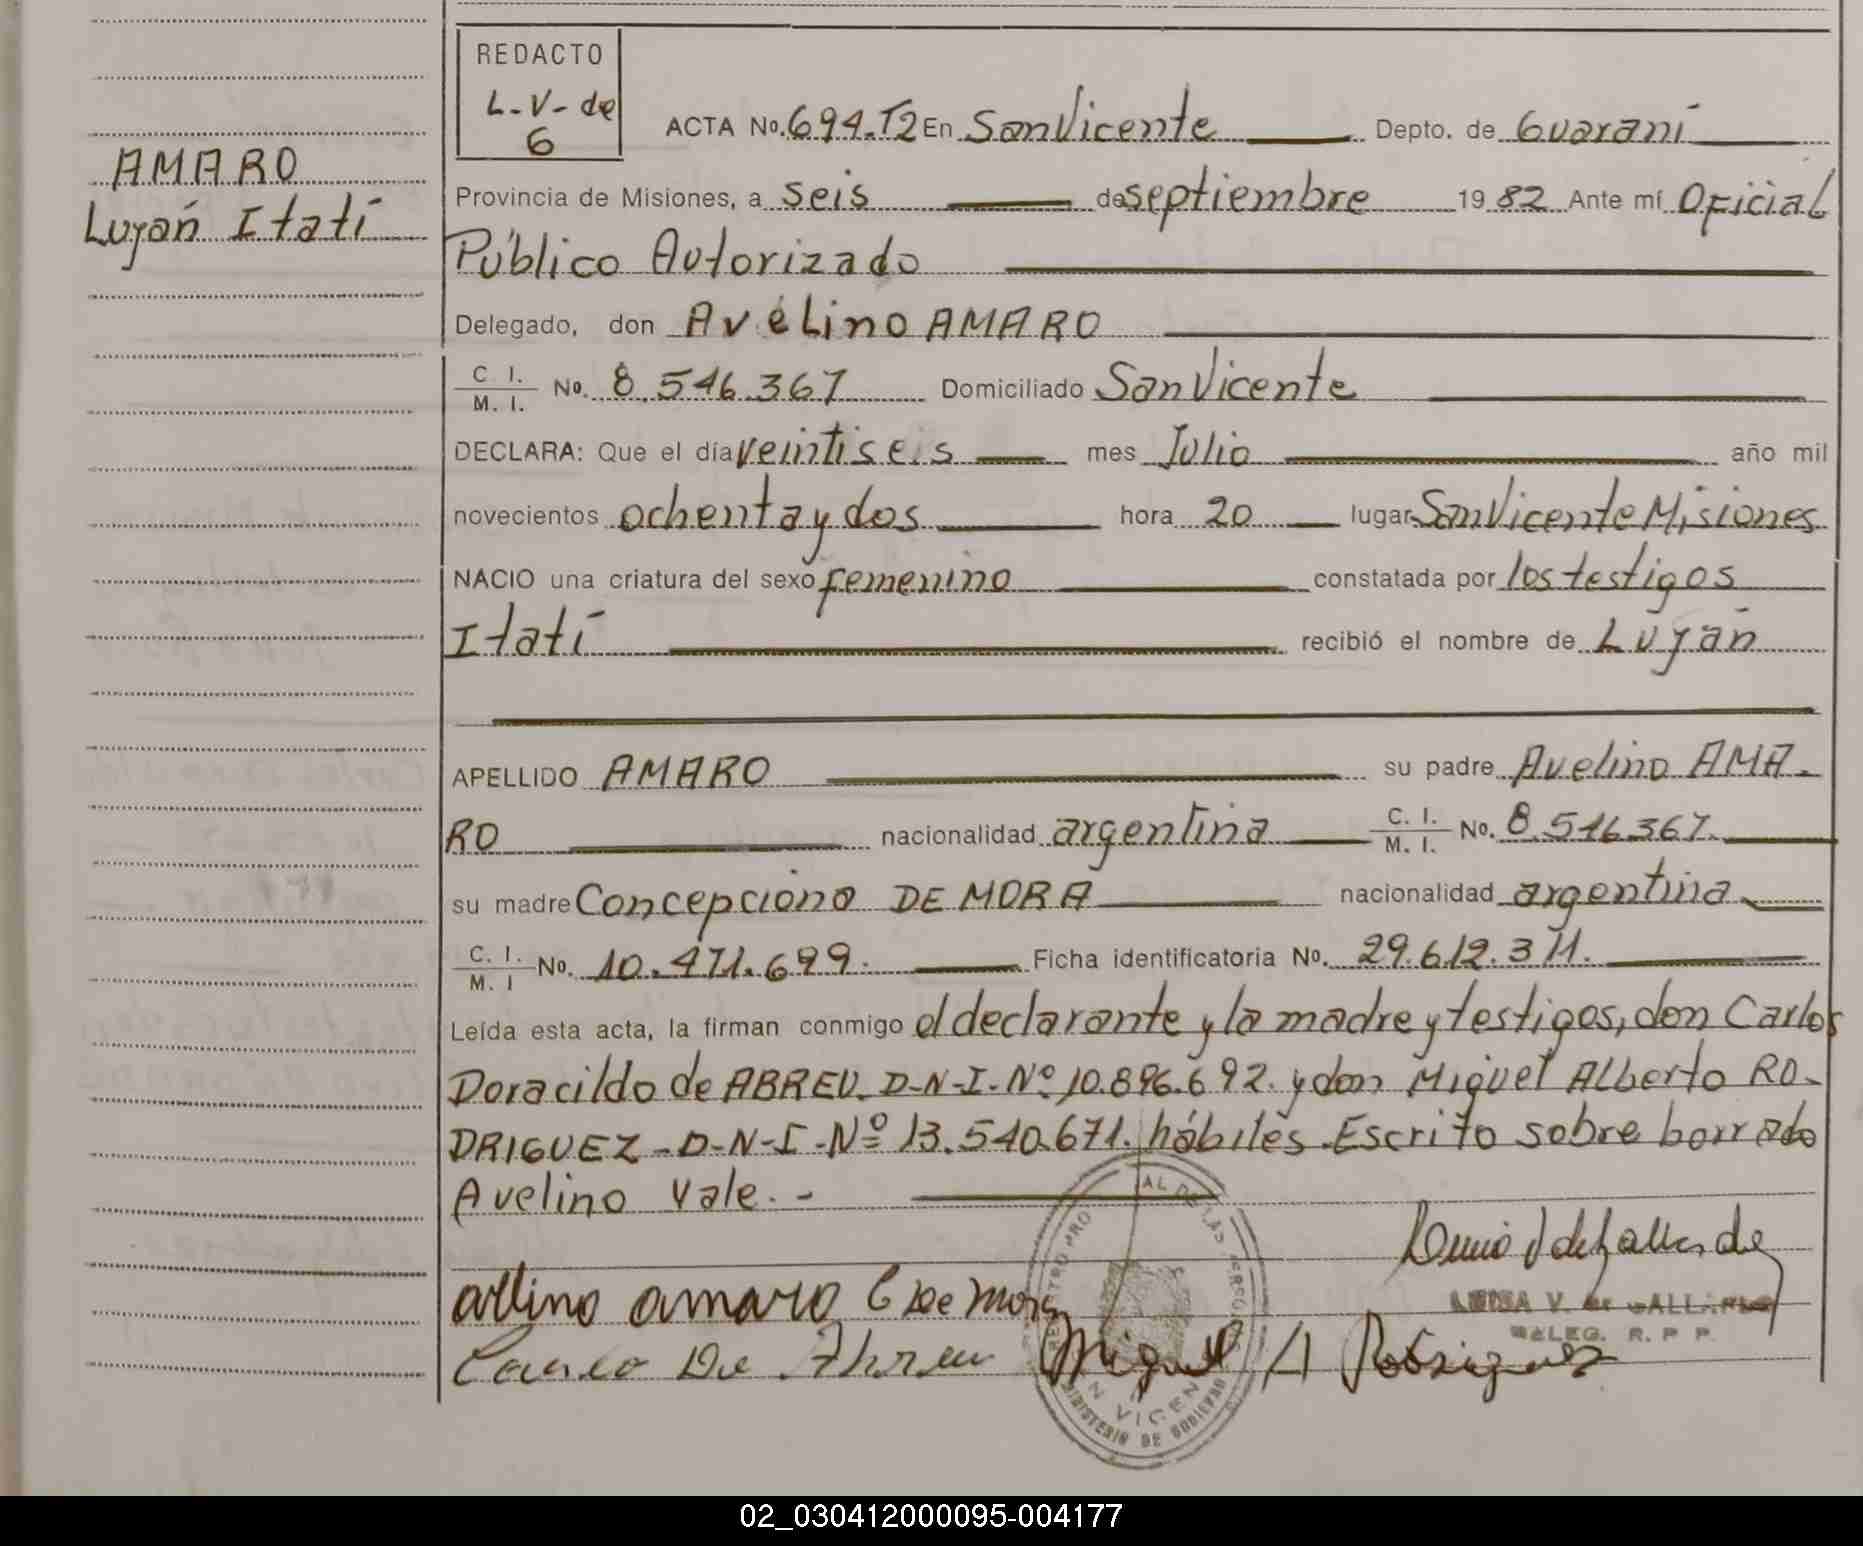 REDACTO
L-V-de
6
ACTA No. 694.T2 En San Vicente Depto. de Guaraní
AMARO
Luján Itatí
Provincia de Misiones, a seis de septiembre 1982 Ante mí Oficial
Público Autorizado
Delegado, don Avelino AMARO
C. I. / M. I. No. 8.546.367 Domiciliado San Vicente
DECLARA: Que el día veintiseis mes Julio año mil
novecientos ochenta y dos hora 20 lugar San Vicente Misiones
NACIO una criatura del sexo femenino constatada por los testigos
Itatí recibió el nombre de Luján
APELLIDO AMARO su padre Avelino AMA-
RO nacionalidad argentina C. I. / M. I. No. 8.546.367.
su madre Concepciona DE MORA nacionalidad argentina
C. I. / M. I No. 10.471.699. Ficha identificatoria No. 29.612.371.
Leída esta acta, la firman conmigo el declarante y la madre y testigos, don Carlos
Doracildo de ABREU. D-N-I-Nº 10.896.692. y don Miguel Alberto RO-
DRIGUEZ-D-N-I-Nº 13.540.671. hábiles. Escrito sobre borrado
Avelino Vale.-
AL DE LAS PERSO
avlino amaro C De Mora
V. de GALLARDO
DELEG. R. P. P.
De Abreu Miguel A Rodriguez
N VICEN
MINISTERIO DE GOBIERNO
02_030412000095-004177